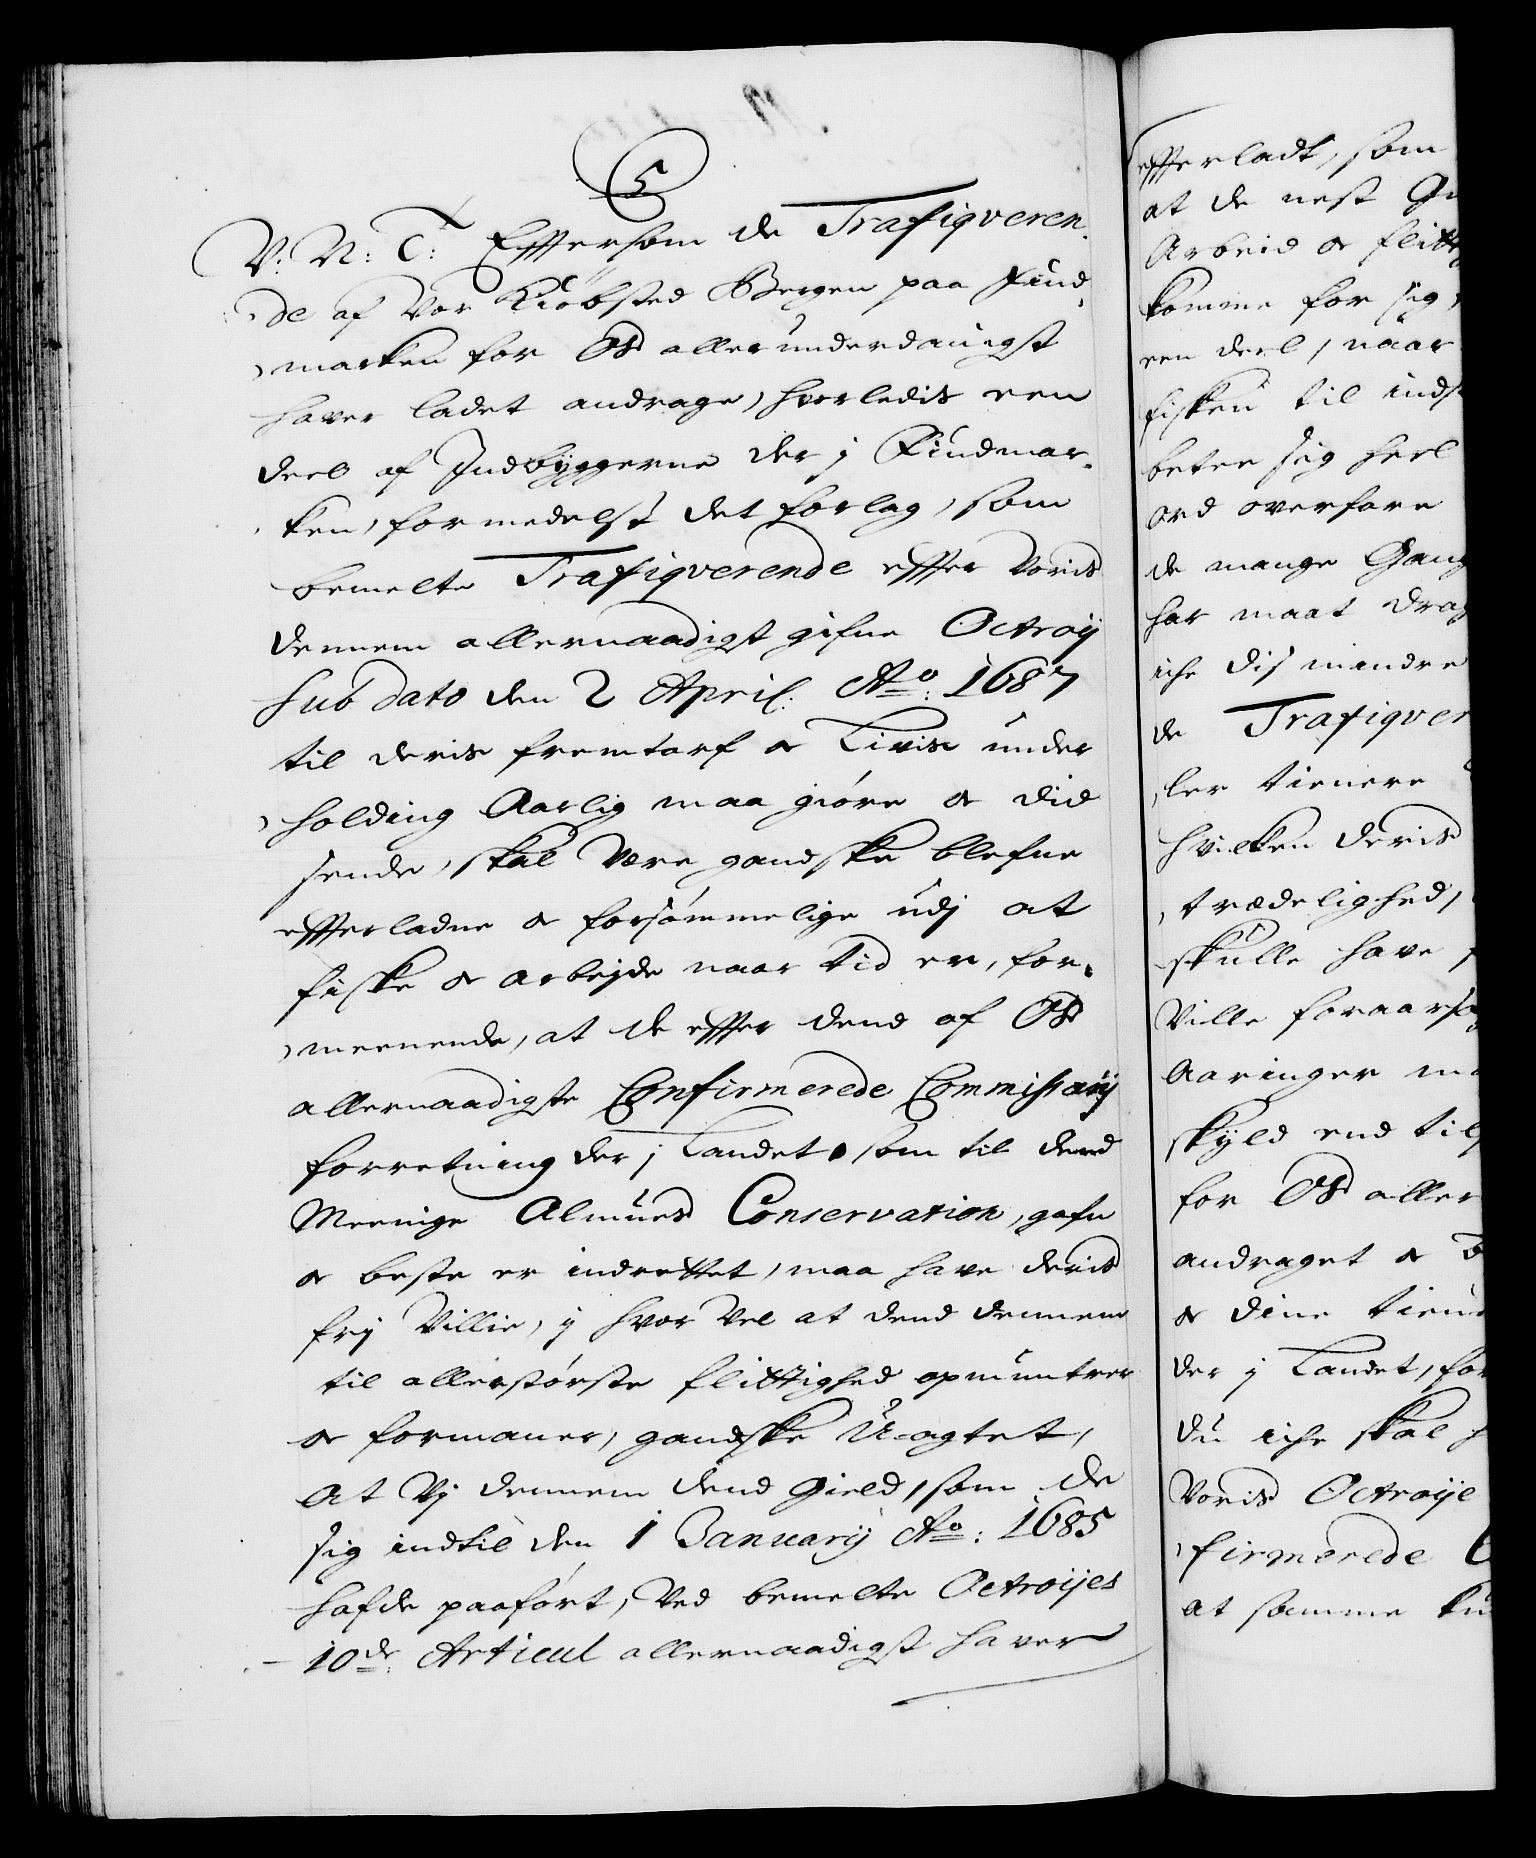 5
V: N: T: Efftersom de Trafiqveren,
de af Vor Kiøbsted Bergen paa Find,
marken for Os allerunderdanigst
haver ladet andrage, hvorledis een
deel af Indbyggerne der j Findmar,
ken, formedelst det forlag, som
bemelte Trafiqverende effter Voris
dennem allernaadigst gifne Octroij
sub dato den 2 April: Aº: 1687
til deris fremtarf og Livis under
holding Aarlig maa giøre og did
sende, skal være gandske blefne
effterladne og forsømmelige udj at
fiske og arbejde naar tid er, for,
meenende, at de effter dend af Os
allernaadigste Confirmerede Commissarij
forretning der j Landet som til dend
Meenige Almues Conservation, gafn
og beste er indrettet, maa have deris
frj Villie, j hvor vel at dend dennem
til allerstørste flittighed opmuntrer
og formaner, gandske U-agtet,
At Vj dennem dend Gield, som de
sig indtil den 1 Januarij Aº: 1685
hafde paaført, Ved bemelte Octroijes
10de: Articul allernaadigst haver
effterladt, som
at de nest Gu
Arbeid og flitt
komme for sig,
een deel, naar
fisken til inds
beter sig heel
ord overfare
de mange Gang
har maat drag
iche dis mindre
de Trafiqver
ler tienere
hvilken deris
trædelighed,
skulle have
Ville foraarsa
Aaringer ma
skyld end til
for Os aller
andraget og b
og dine tiene
der j Landet, for
du iche skal h
Voris Octroije
firmerede C
at samme ku